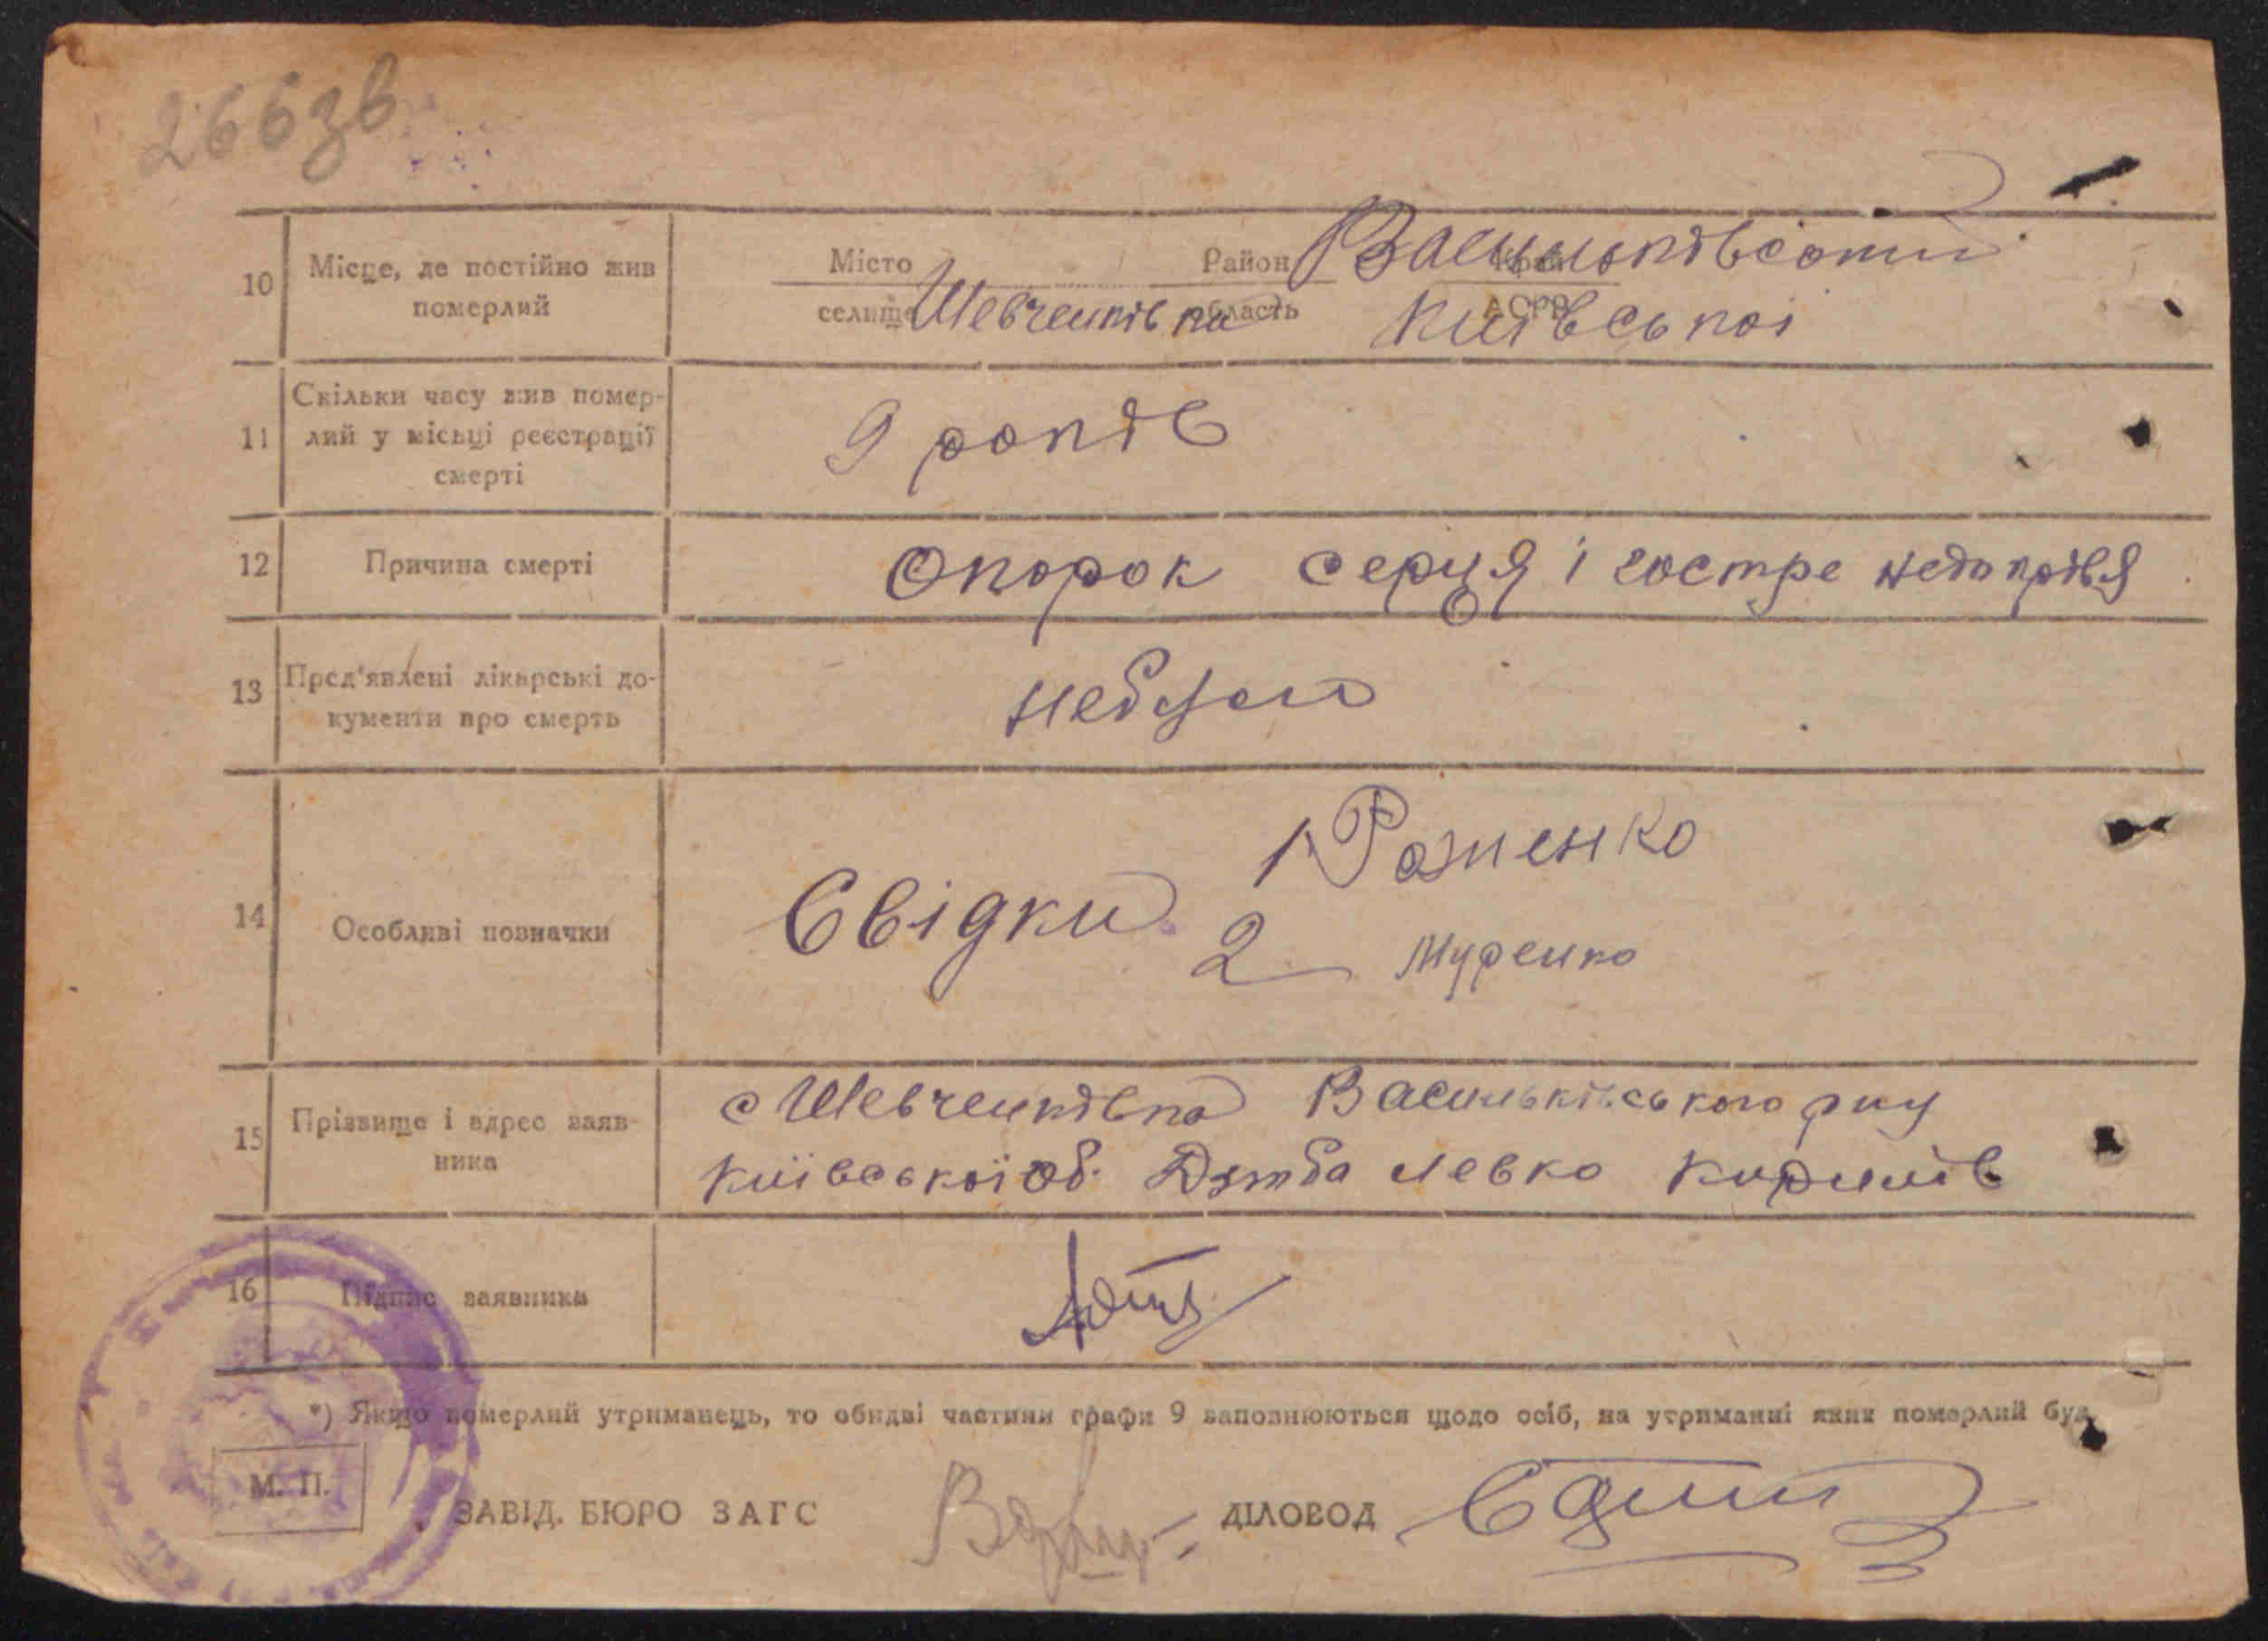 266зв
10 Місце, де постійно жив померлий
Місто Район Васильківський Край
селище Шевченківка область Київської АСРР
11 Скільки часу жив помер-
лий у місьці реєстрації
смерті
9 років
12 Причина смерті
Опорок серця і гостре недокрівʼя
13 Пред'явлені лікарські до-
кументи про смерть
14 Особливі позначки
Свідки 1
2 Муренко
15 Прізвище і адрес заяв-
ника
с Шевченківка Васильківського р-ну
Київської об. Дзюба Левко Кирилів
16 Підпис заявника
*) Якщо померлий утриманець, то обидві частини графи 9 заповнюються щодо осіб, на утриманні яких померлий був
М. П.
ЗАВІД. БЮРО ЗАГС ДІЛОВОД